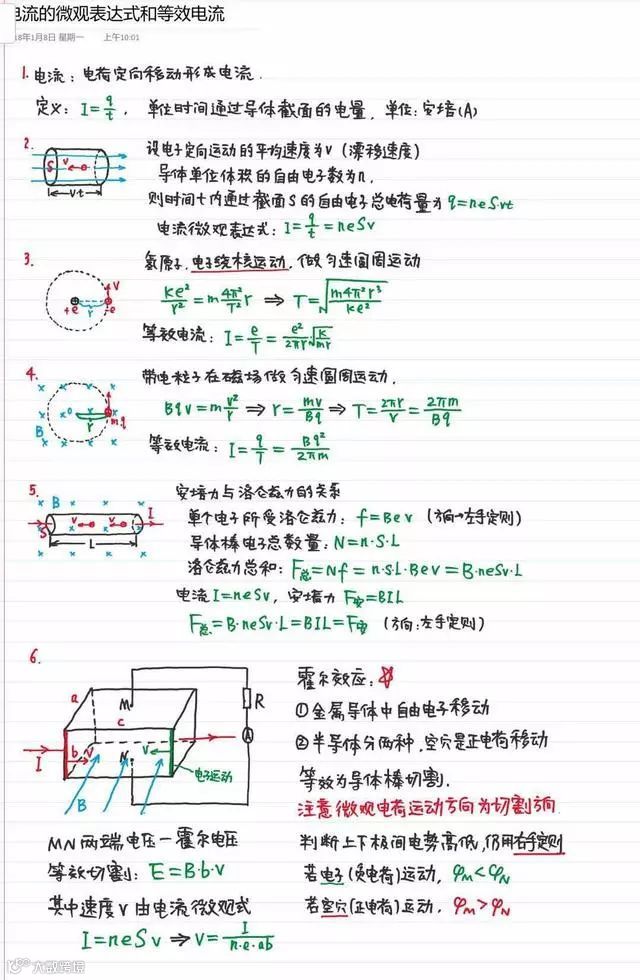 电流的微观表达式和等效电流
18年1月8日 星期一 上午10:01
1. 电流：电荷定向移动形成电流．
定义：I=q/t． 单位时间通过导体截面的电量．单位：安培(A)
2.
设电子定向运动的平均速度为v（漂移速度）
S v
导体单位体积的自由电子数为n．
v·t
则时间t内通过截面S的自由电子总电荷量为 q=neSvt
电流微观表达式：I=q/t=neSv
3.
氢原子．电子绕核运动．做匀速圆周运动
+e r -e v
ke²/r²=m4π²/T² r ⇒ T=√(m4π²r³/ke²)
等效电流：I=e/T=e²/2πr √(k/mr)
4.
带电粒子在磁场做匀速圆周运动．
B o r m.q
Bqv=mv²/r ⇒ r=mv/Bq ⇒ T=2πr/v=2πm/Bq
等效电流：I=q/T=Bq²/2πm
5.
安培力与洛仑兹力的关系
B I S v v L
单个电子所受洛仑兹力：f=Bev（方向→左手定则）
导体棒电子总数量：N=n·S·L
洛仑兹力总和：F总=Nf=n·S·L·Bev=B·neSv·L
电流 I=neSv，安培力 F安=BIL
F总=B·neSv·L=BIL=F安（方向：左手定则）
6.
a M c b v N v I B R A
电子运动
霍尔效应：
①金属导体中自由电子移动
②半导体分两种．空穴是正电荷移动
等效为导体棒切割．
注意微观电荷运动方向为切割方向．
MN两端电压－霍尔电压
等效切割：E=B·b·v
其中速度v由电流微观式
I=neSv ⇒ v=I/n·e·ab
判断上下极间电势高低，仍用右手定则
若电子(负电荷)运动，φM<φN
若空穴(正电荷)运动．φM>φN
大数跨境